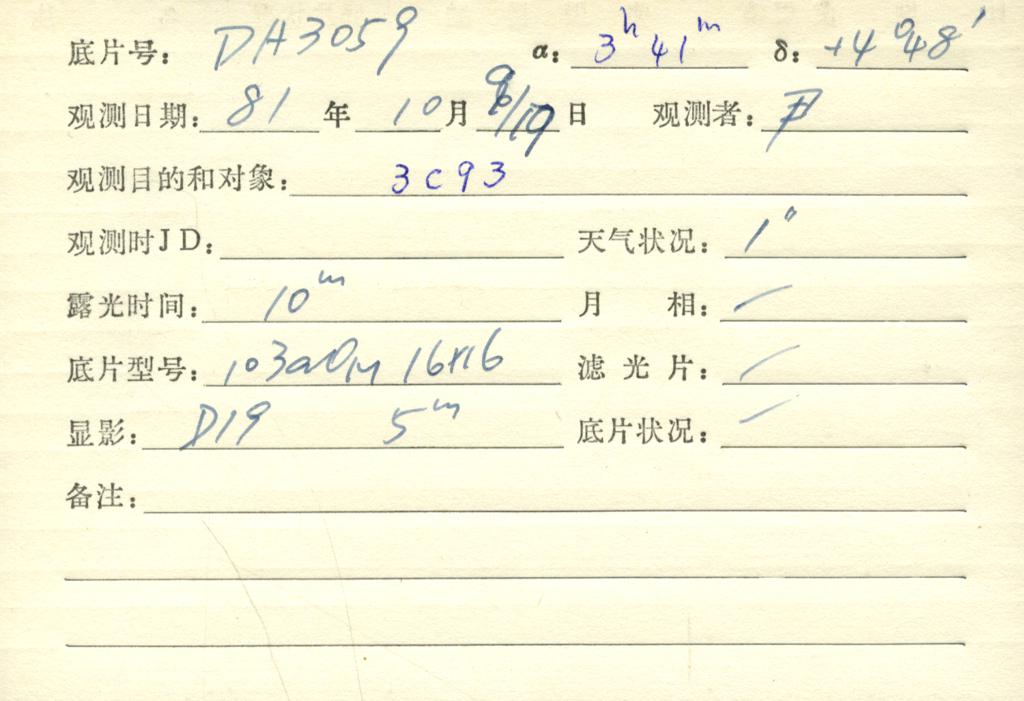 底片号: DA3059 α: 3h 41m δ: +4°48′
观测日期: 81 年 10 月 /19 日 观测者:
观测目的和对象: 3C93
观测时JD: 天气状况: 1″
露光时间: 10m 月 相: /
底片型号: 103aO 16×16 滤光片: /
显影: D19 5m 底片状况: /
备注: